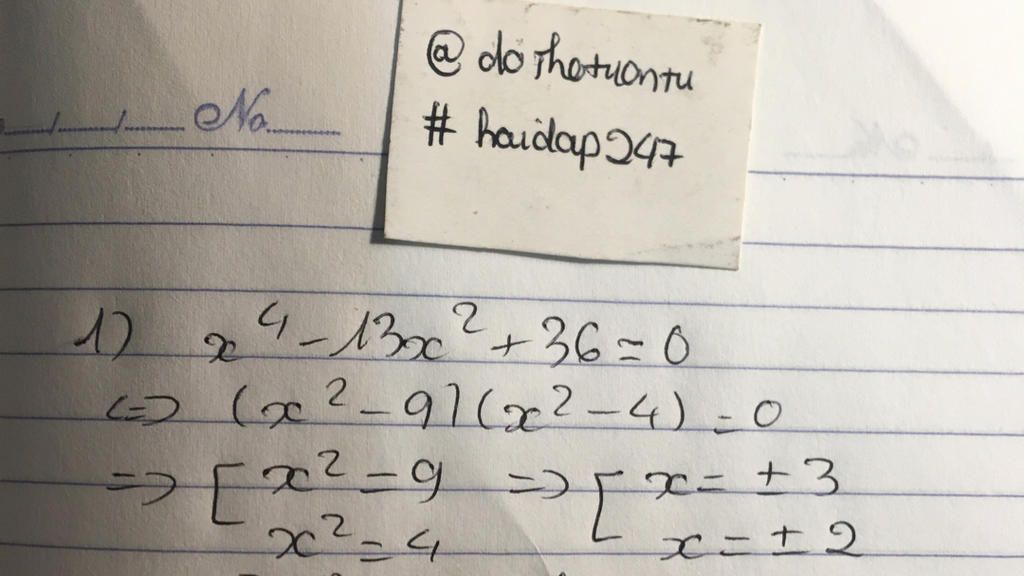 @ dothotuontu
# hoidap247
No
1) x⁴ - 13x² + 36 = 0
<=> (x² - 9)(x² - 4) = 0
=> [ x² = 9 => [ x = ± 3
x² = 4 x = ± 2